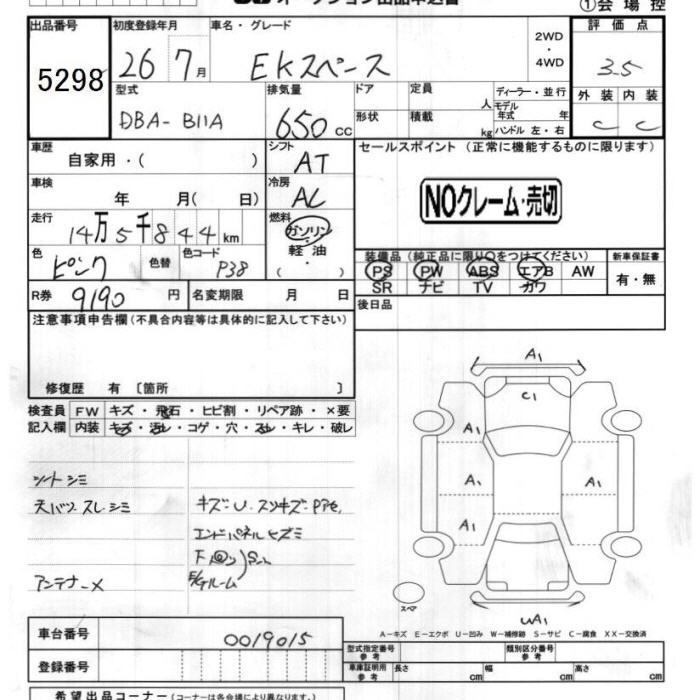 オークション出品申込書 ①会場控
出品番号 初度登録年月 車名・グレード 評価点
5298 26 7月 EKスペース 2WD ・ 4WD 3.5
型式 排気量 ドア 定員 人 ディーラー・並行 外装 内装
DBA-B11A 650cc 形状 積載 kg モデル年式 年 ハンドル 左・右 C C
車歴 自家用・( ) シフト AT セールスポイント (正常に機能するものに限ります)
車検 年 月( 日) 冷房 AC NOクレーム・売切
走行 14万5千844km 燃料 ガソリン・軽油・( )
色 ピンク 色替 色コード P38 装備品 (純正品に限り○をつけてください) 新車保証書
PS PW ABS エアB AW 有・無
SR ナビ TV カワ
R券 9190円 名変期限 月 日 後日品
注意事項申告欄 (不具合内容等は具体的に記入して下さい)
修復歴 有 〔箇所 〕
検査員 FW キズ・飛石・ヒビ割・リペア跡・×要
記入欄 内装 キズ・汚レ・コゲ・穴・スレ・キレ・破レ
A1
C1
A1 A1
A1 A1
A1
シートシミ
天バリ スレ シミ キズ・U・スリキズ・Pアセ,
エンドパネルヒズミ
アンテナー×
スペア
UA1
A-キズ E-エクボ U-凹み W-補修跡 S-サビ C-腐食 XX-交換済
車台番号 0019015 型式指定番号 参考 類別区分番号 参考
登録番号 車庫証明用 参考 長さ cm 幅 cm 高さ cm
希望出品コーナー (コーナーは各会場により異なります)